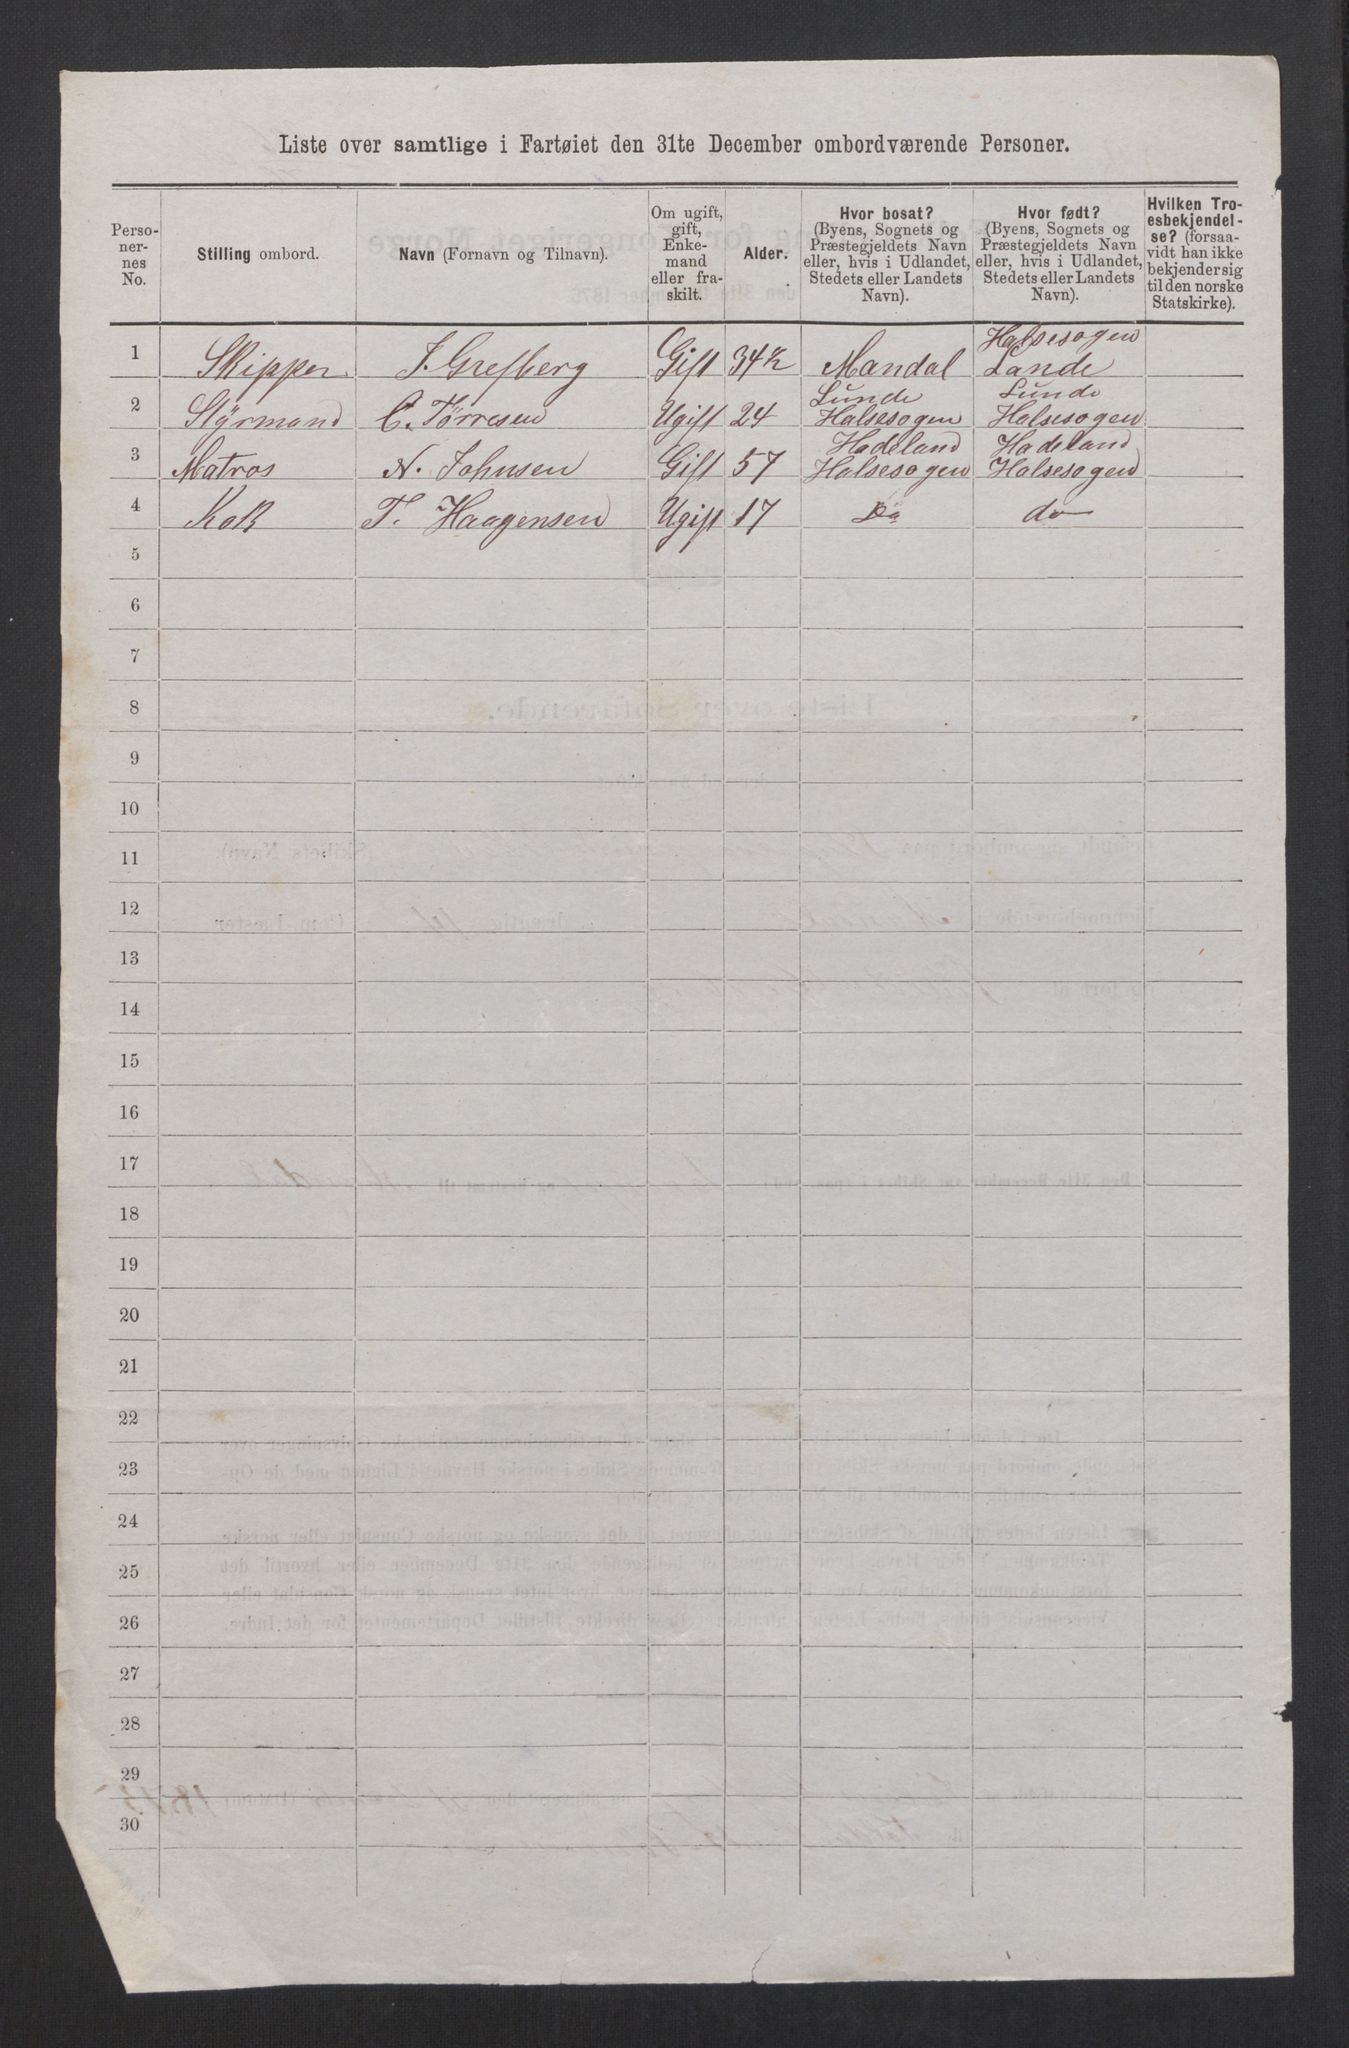 Liste over samtlige i Fartøiet den 31te December ombordværende Personer.
Perso-
ner-
nes
No.
Stilling ombord.
Navn (Fornavn og Tilnavn).
Om ugift,
gift,
Enke-
mand
eller fra-
skilt.
Alder.
Hvor bosat?
(Byens, Sognets og
Præstegjeldets Navn
eller, hvis i Udlandet,
Stedets eller Landets
Navn).
Hvor født?
(Byens, Sognets og
Præstegjeldets Navn
eller, hvis i Udlandet,
Stedets eller Landets
Navn).
Hvilken Tro-
esbekjendel-
se? (forsaa-
vidt han ikke
bekjender sig
til den norske
Statskirke).
Halsesogen
1 Skipper J. Grefberg Gift 34½ Mandal Lande
Lunde Lunde
2 Stÿrmand C. Törresen Ugift 24 Halsesogen Halsesogen
Hadeland Hadeland
3 Matros N. Johnsen Gift 57 Halsesogen Halsesogen
4 Kok T. Haagensen Ugift 17 Do do
5
6
7
8
9
10
11
12
13
14
15
16
17
18
19
20
21
22
23
24
25
26
27
28
29
30